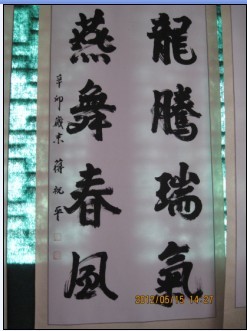 龍騰瑞氣
燕舞春風
辛卯歲末 蒋祝平
2012/05/15 14:37